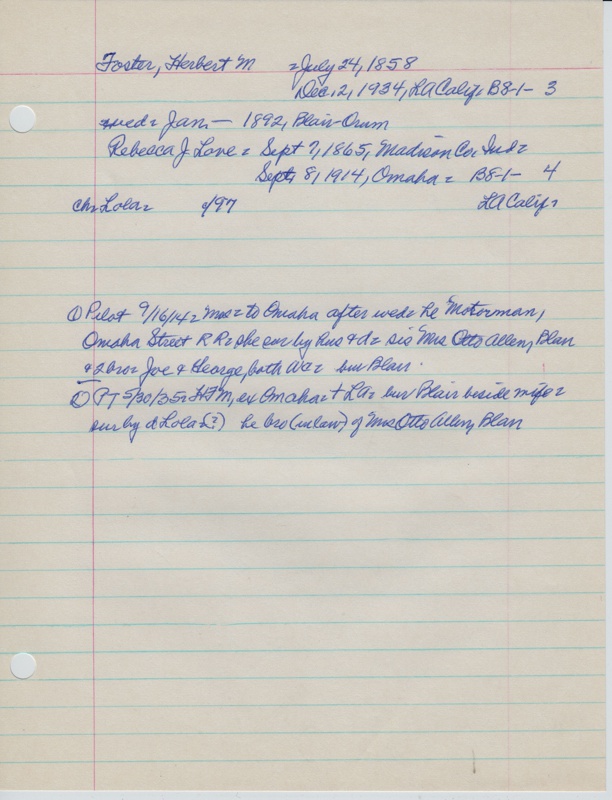 Foster, Herbert M = July 24, 1858
Dec, 2, 1934, LA Calif = B8-1- 3
wed = Jan, — 1892, Blair-Orum
Rebecca J Love = Sept 7, 1865, Madison Co, Ind =
Sept, 8, 1914, Omaha = B8-1- 4
ch = Lola = 97 LA Calif =
① Pilot 9/16/14 = Mrs = to Omaha after wed = he Motorman,
Omaha Street R R = she sur by hus & d = sis Mrs Otto Allen, Blair
& 2 bro = Joe & George, both Wa = bur Blair.
② PT 5/30/35 = H F M, ex Omaha = + LA = bur Blair beside wife =
sur by d Lola (?) he bro (in law) of Mrs Otto Allen, Blair